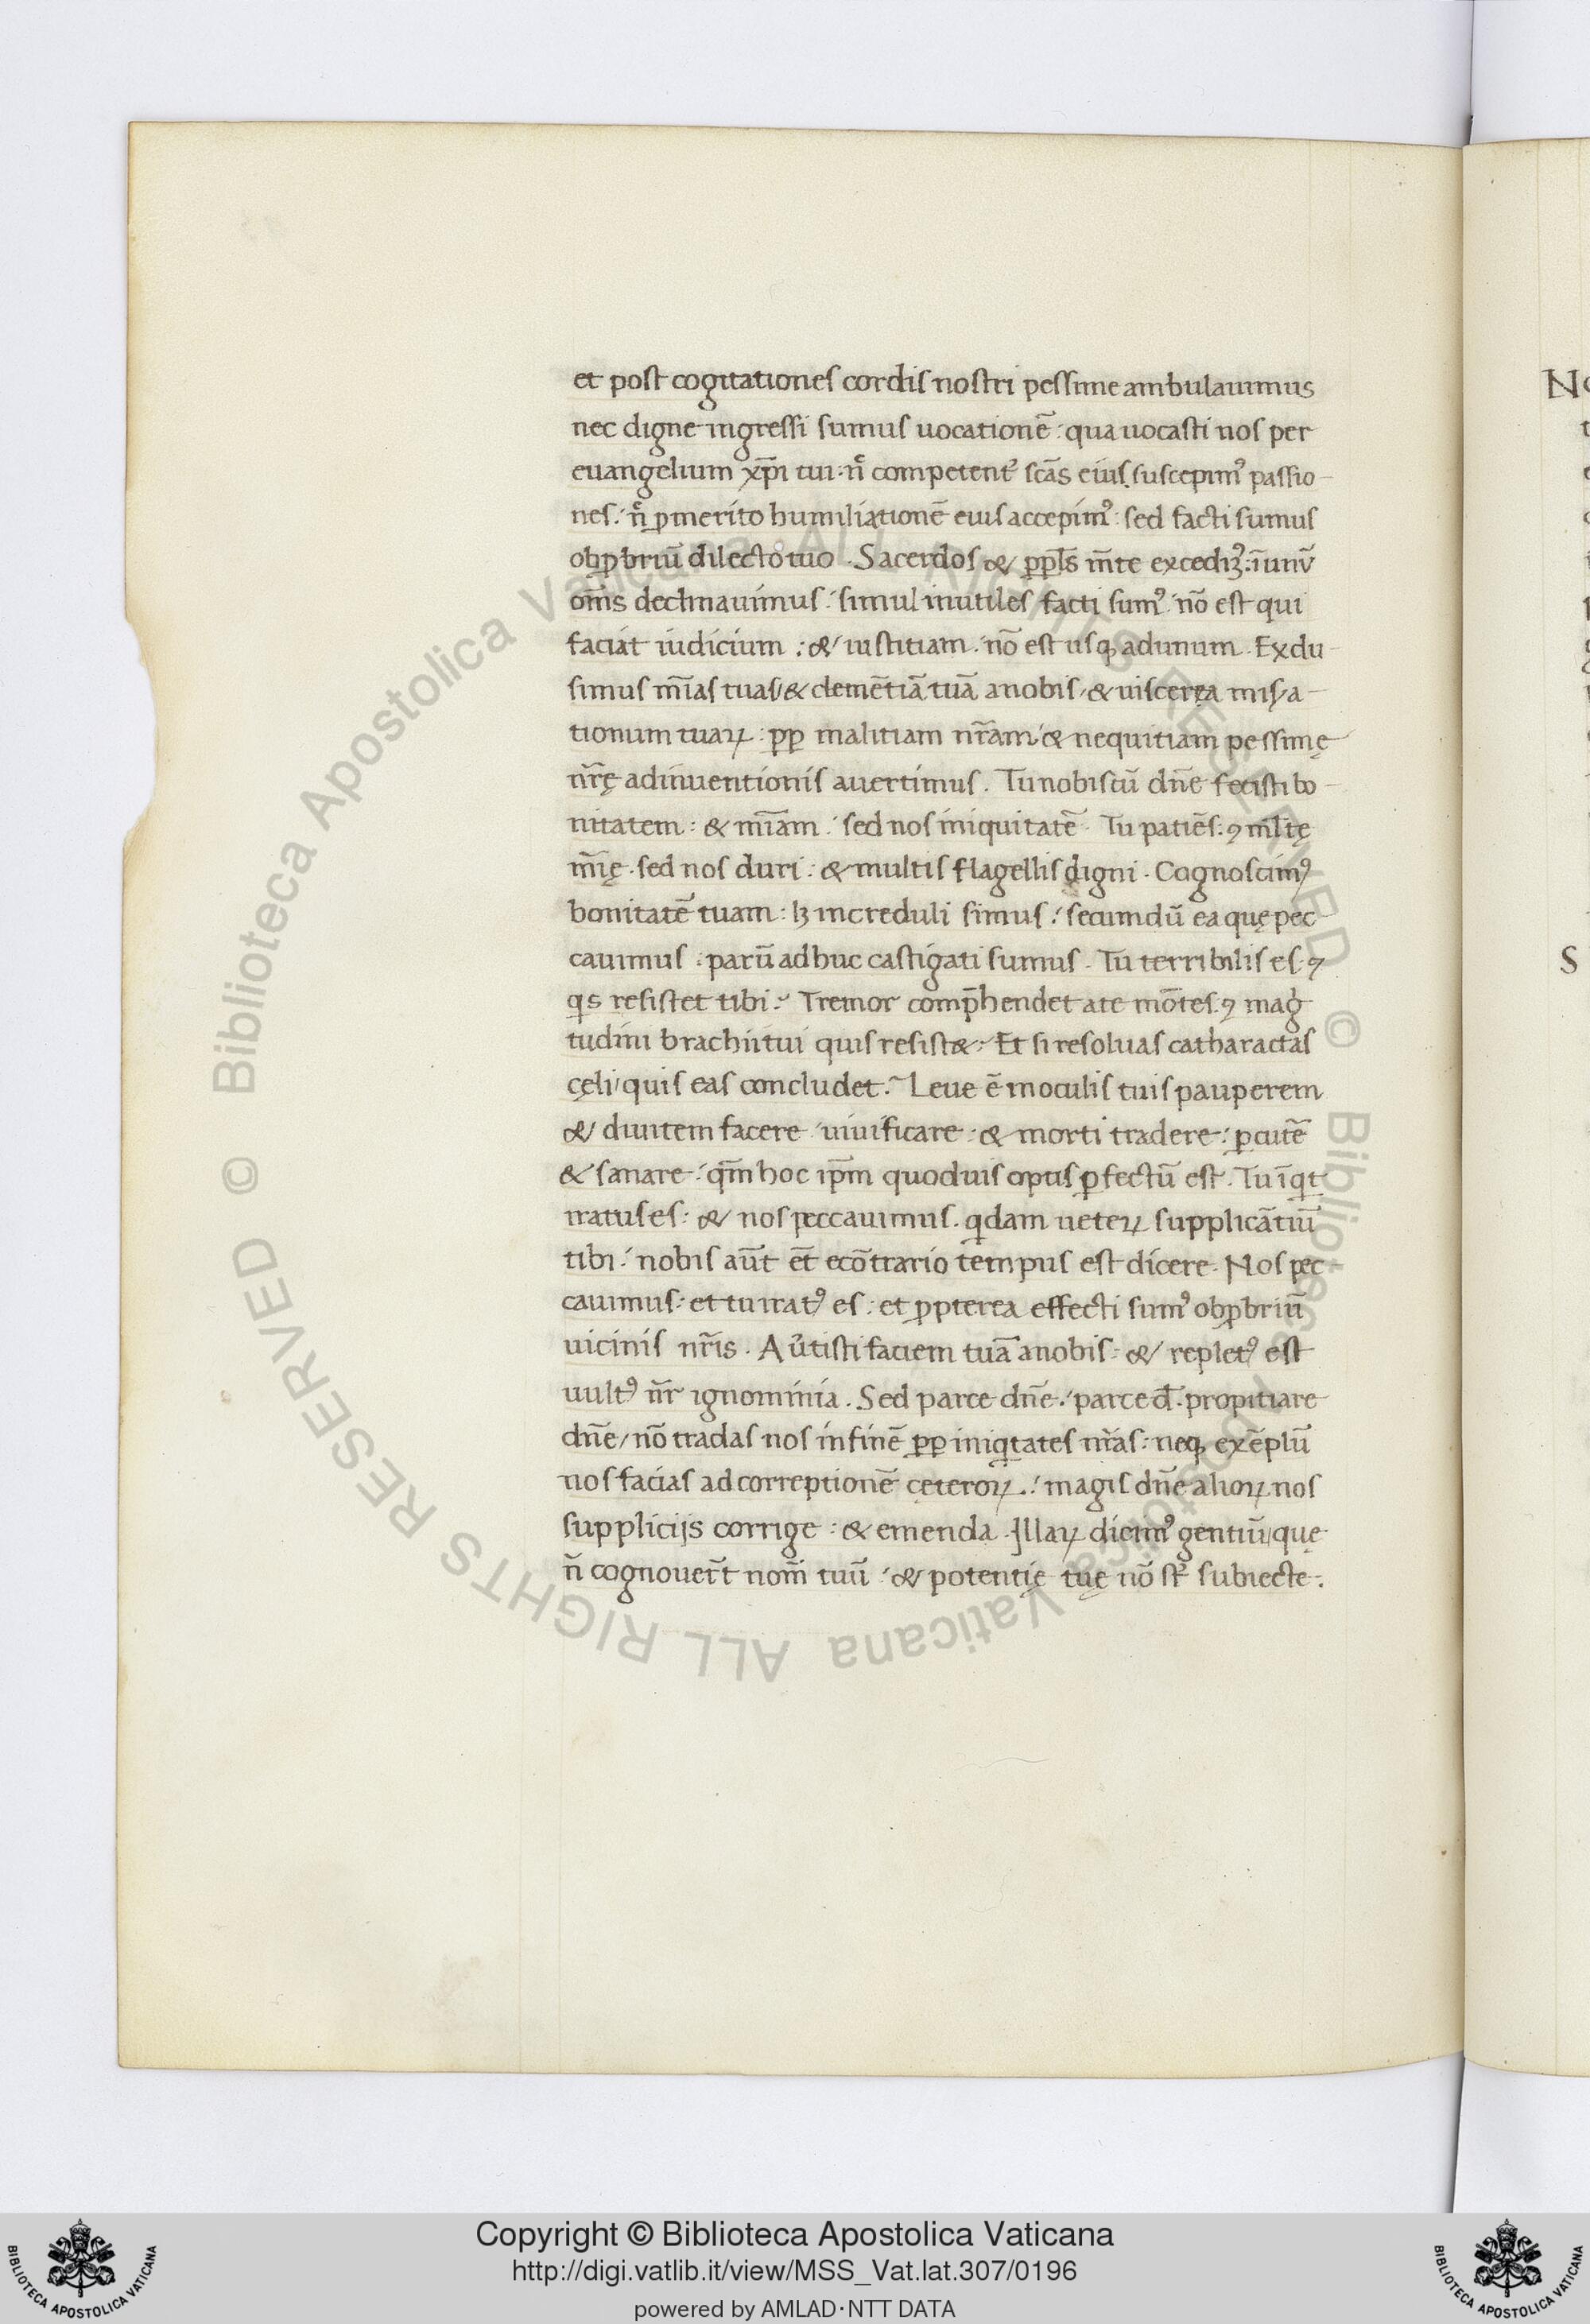 et post cogitationes cordis nostri pessime ambulauimus
nec digne ingressi sumus uocationē: qua uocasti nos per
euangelium xp̄i tui: n̄ competent᷑ sc̄as eius suscepim᷒ passio-
nes: n̄ ꝓ merito humiliationē eius accepim᷒: sed facti sumus
obꝓbriū dilecto tuo. Sacerdos & ppl̄s m̄te excediꝫ: ī unū
om̄s declinauimus: simul inutiles facti sum᷒: nō est qui
faciat iudicium: & iustitiam: nō est usqꝫ ad unum. Exclu-
simus mīas tuas / & clemētiā tuā a nobis / & uiscera mis/a-
tionum tuaꝝ: ꝓp malitiam nr̄am: & nequitiam pessimę
nr̄ę adinuentionis auertimus. Tu nobiscū dn̄e fecisti bo-
nitatem: & mīam: sed nos iniquitatē. Tu patiēs: ꝯ ml̄tę
mīę. sed nos duri: & multis flagellis digni. Cognoscim᷒
bonitatē tuam: lꝫ increduli simus: secundū ea quę pec-
cauimus: parū adhuc castigati sumus. Tu terribilis es: ꝯ
qs resistet tibi? Tremor comp̄hendet a te mōtes: ꝯ mag
tudini brachii tui quis resist&: Et si resoluas catharactas
cęli / quis eas concludet? Leue ē in oculis tuis pauperem
& diuitem facere: uiuificare: & morti tradere: ꝑcutē
& sanare: qm̄ hoc ip̄m quod uis optīs ꝑfectū est. Tu īqt
iratus es: & nos peccauimus. qdam ueteꝝ supplicātiū
tibi: nobis aūt et̄ ecōtrario tempus est dicere. Nos pec-
cauimus: et tu irat᷒ es: et ꝓpterea effecti sum᷒ obꝓbriū
uicinis nr̄is. Au᷑tisti faciem tuā a nobis: & replet᷒ est
uult᷒ nr̄ ignominia. Sed parce dn̄e: parce d̄s. propitiare
dn̄e / nō tradas nos in finē ꝓp iniqtates nr̄as: neqꝫ exēplū
nos facias ad correptionē ceteroꝝ: magis dn̄e alioꝝ nos
supplicijs corrige: & emenda. Illaꝝ dicim᷒ gentiū / quę
n̄ cognouer̄t nom̄ tuū: & potentię tuę nō st̄ subiecte:
No
S
© Biblioteca Apostolica Vaticana ALL RIGHTS RESERVED © Biblioteca Apostolica Vaticana ALL RIGHTS RESERVED
Copyright © Biblioteca Apostolica Vaticana
http://digi.vatlib.it/view/MSS_Vat.lat.307/0196
powered by AMLAD·NTT DATA
BIBLIOTECA APOSTOLICA VATICANA
BIBLIOTECA APOSTOLICA VATICANA